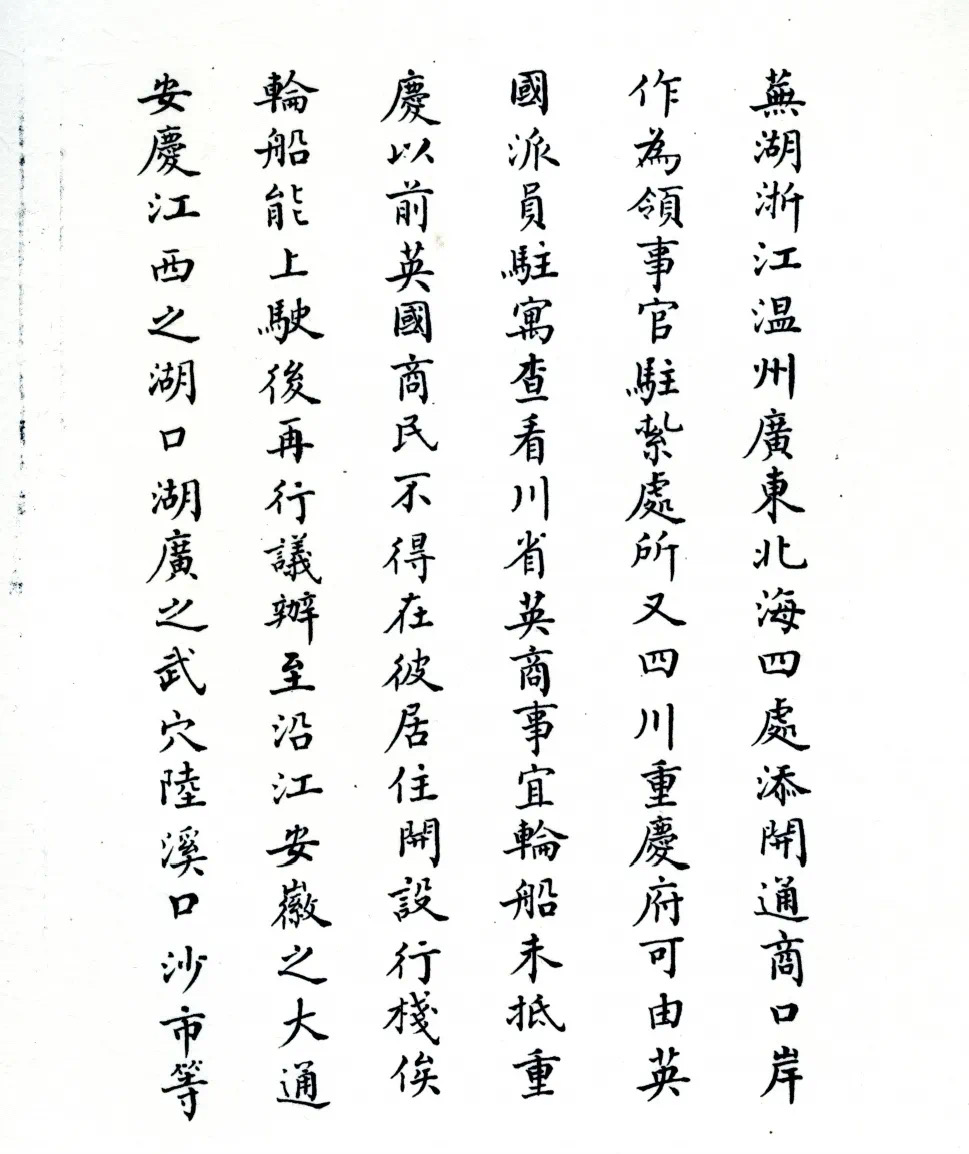 蕪湖浙江温州廣東北海四處添開通商口岸
作為領事官駐紮處所又四川重慶府可由英
國派員駐寓查看川省英商事宜輪船未抵重
慶以前英國商民不得在彼居住開設行棧俟
輪船能上駛後再行議辦至沿江安徽之大通
安慶江西之湖口湖廣之武穴陸溪口沙市等